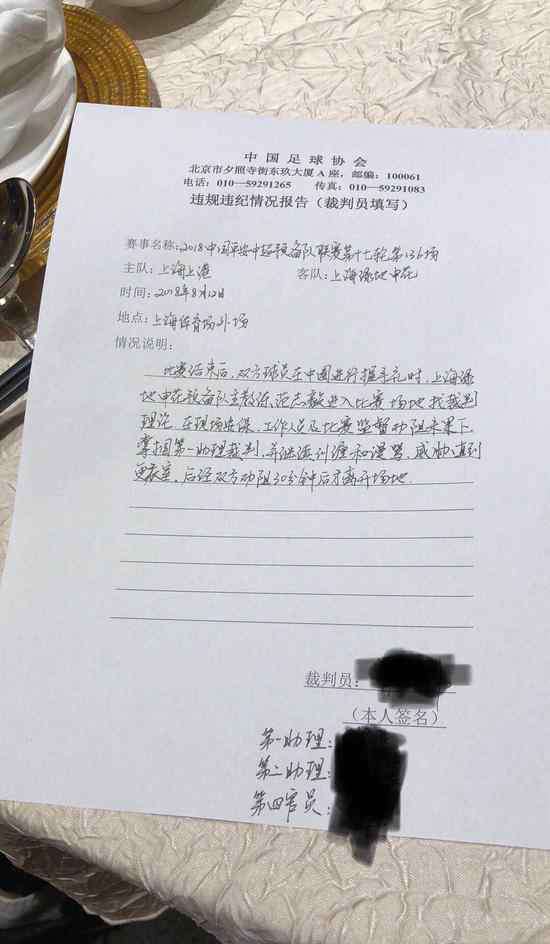 中国足球协会
北京市夕照寺街东玖大厦A座，邮编：100061
电话：010—59291265 传真：010—59291083
违规违纪情况报告（裁判员填写）
赛事名称：2018中国平安中超预备队联赛第十七轮第136场
主队：上海上港 客队：上海绿地申花
时间：2018年8月12日
地点：上海体育场外场
情况说明：
比赛结束后，双方球员在中圈进行握手礼时，上海绿
地申花预备队主教练范志毅进入比赛场地找裁判
理论，在现场安保、工作人员及比赛监督劝阻未果下，
掌掴第一助理裁判，并继续纠缠和谩骂，威胁直到
更衣室，后经双方劝阻30分钟后才离开场地.
裁判员：
（本人签名）
第一助理：
第二助理：
第四官员：